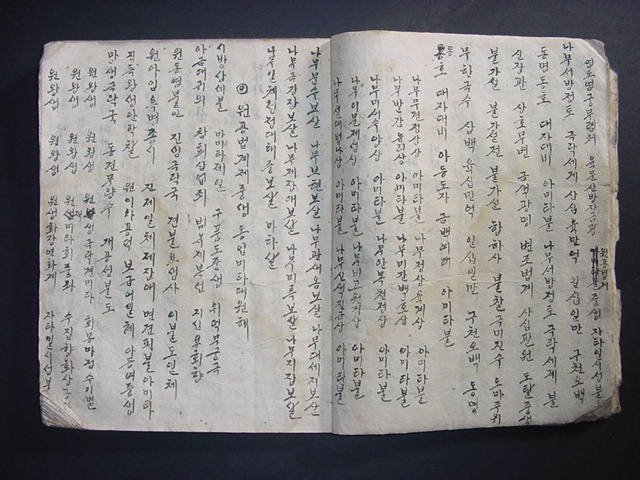 염도염궁무념처 육문상방자금광 원공법계 중생 자타일시성불
나무서방정토 극락세계 삼십육만억 일십일만 구천오백
동명동호 대자대비 아미타불 나무서방정토 극락세계 불
신장광 상호무변 금색광명 변조법계 사십팔원 도탈중생
불가설 불가설전 불가설 항하사 불찰극미진수 도마주위
무한극수 삼백육십만억 일십일만 구천오백 동명
동호 대자대비 아등도사 금백여래 아미타불
나무무견정상상 아미타불 나무정상육계상 아미타불
나무발감유리상 아미타불 나무미간백호상 아미타불
나무미세수양상 아미타불 나무안목청정상 아미타불
나무이문제성상 아미타불 나무비고원직상 아미타불
나무설대법라상 아미타불 나무신색진금상 아미타불
나무문수보살 나무보현보살 나무관세음보살 나무대세지보살
나무금강장보살 나무제장애보살 나무미륵보살 나무지장보살
나무일체청정대해중보살 마하살
◎ 원공법계제중생 동입미타대원해
시방삼세불 아미타제일 구품도중생 위덕무궁극
아금대귀의 참회삼업죄 범유제복선 지심용회향
원동염불인 진생극락국 견불요생사 여불도일체
원아임욕명종시 진제일체제장애 면견피불아미타
즉득왕생안락찰 원이차공덕 보급어일체 아등여중생
당생극락국 동견무량수 개공성불도
원왕생 원왕생 원생극락견미타 획몽마정수기별
원왕생 원왕생 원재미타회중좌 수집향화상공
원왕생 원왕생 원생화장연화계 자타일시성불